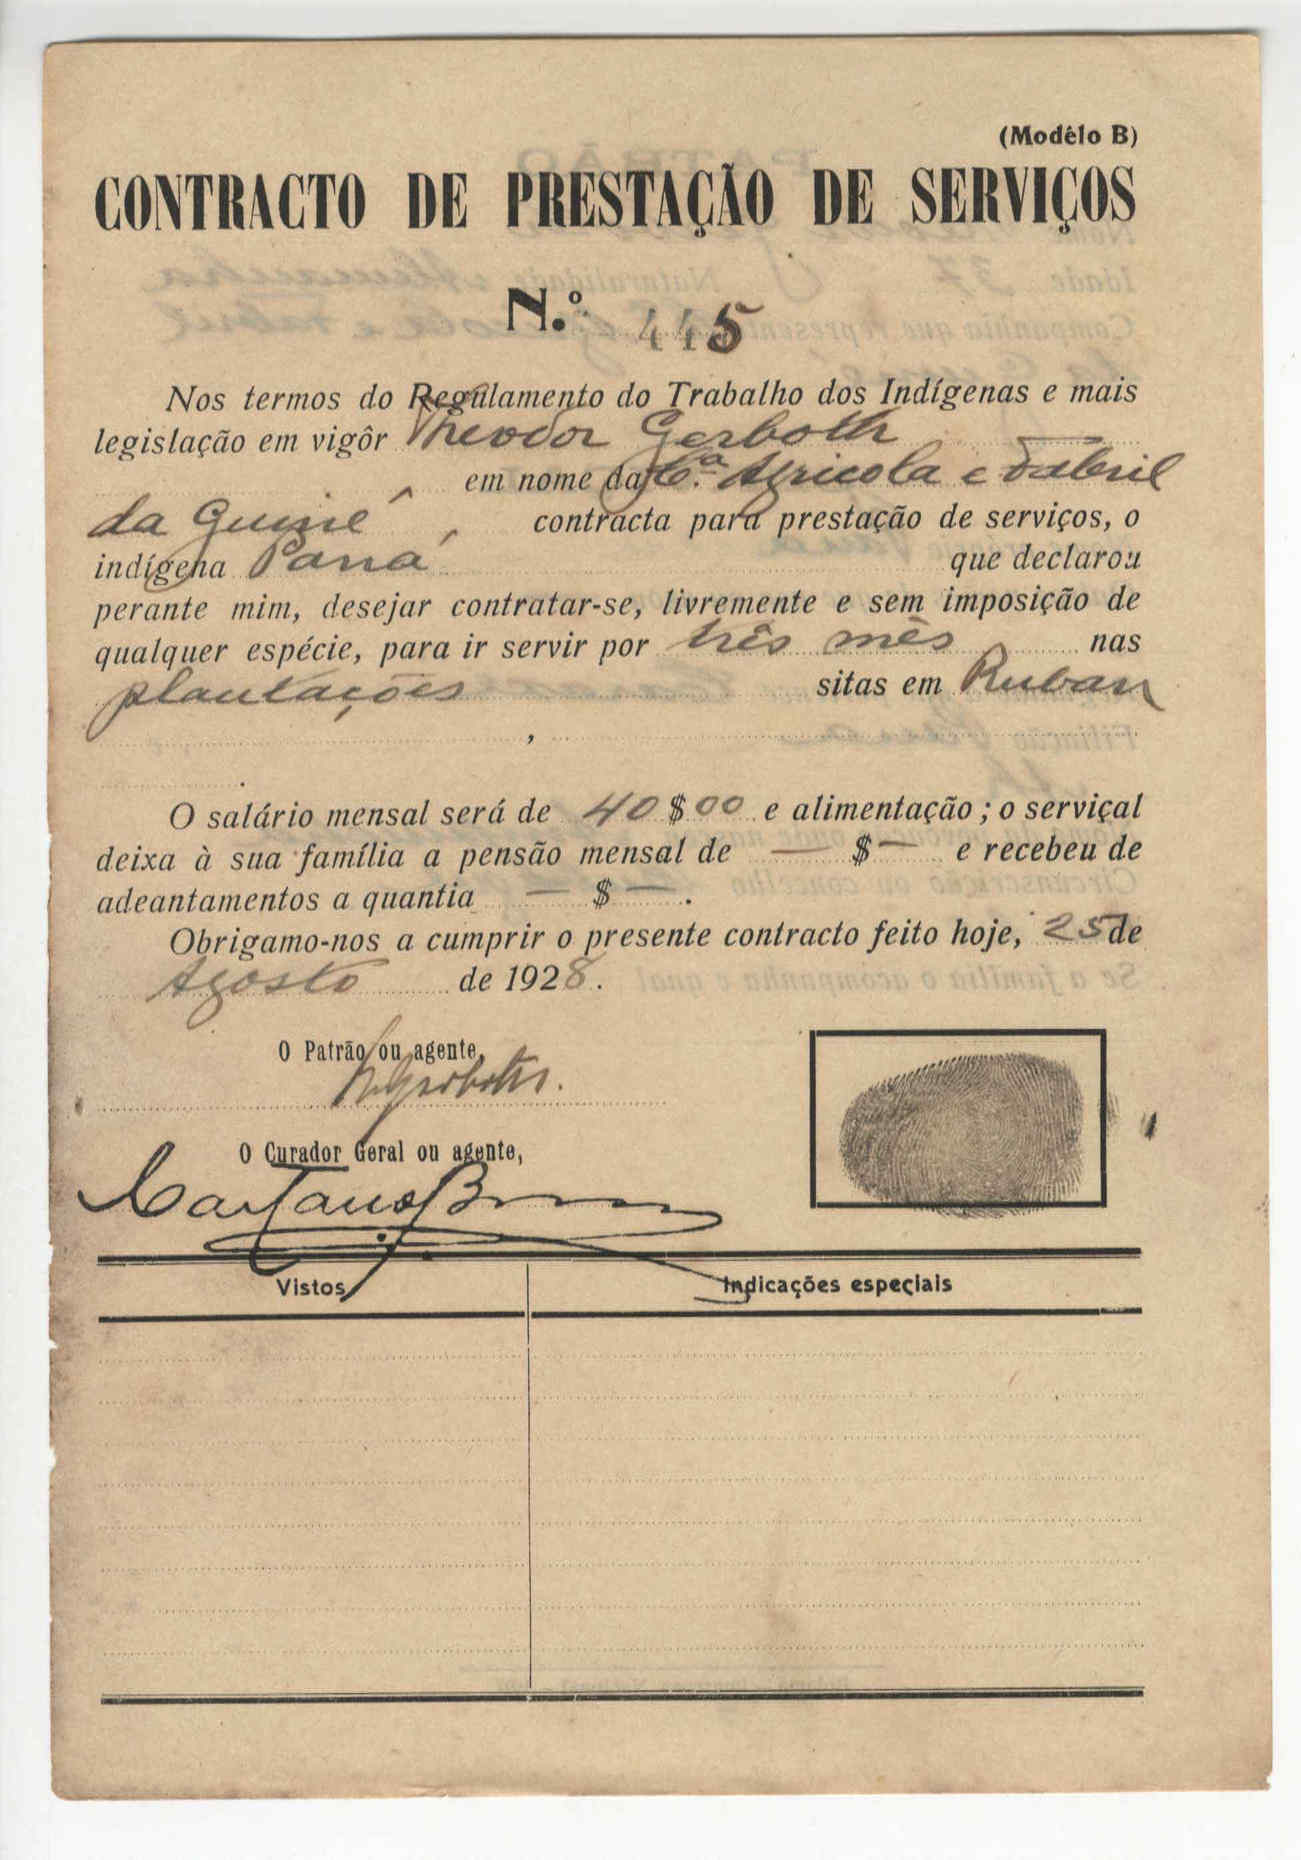 (Modêlo B)
CONTRACTO DE PRESTAÇÃO DE SERVIÇOS
N.º 445
Nos termos do Regulamento do Trabalho dos Indígenas e mais
legislação em vigôr Theodor Gerboth
em nome da Cª. Agricola e Fabril
da Guiné, contracta para prestação de serviços, o
indígena Paná que declarou
perante mim, desejar contratar-se, livremente e sem imposição de
qualquer espécie, para ir servir por três mês nas
plantações sitas em Ruban
,
.
O salário mensal será de 40$00 e alimentação; o serviçal
deixa à sua família a pensão mensal de — $ — e recebeu de
adeantamentos a quantia — $ — .
Obrigamo-nos a cumprir o presente contracto feito hoje, 25 de
Agosto de 1928.
O Patrão ou agente,
O Curador Geral ou agente,
Caetano
Vistos
Indicações especiais